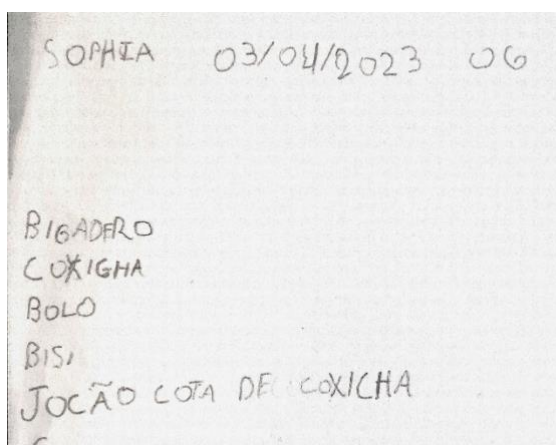 SOPHIA 03/04/2023 06
BIGADERO
COXIGHA
BOLO
BISI
JOCÃO COTA DE COXICHA